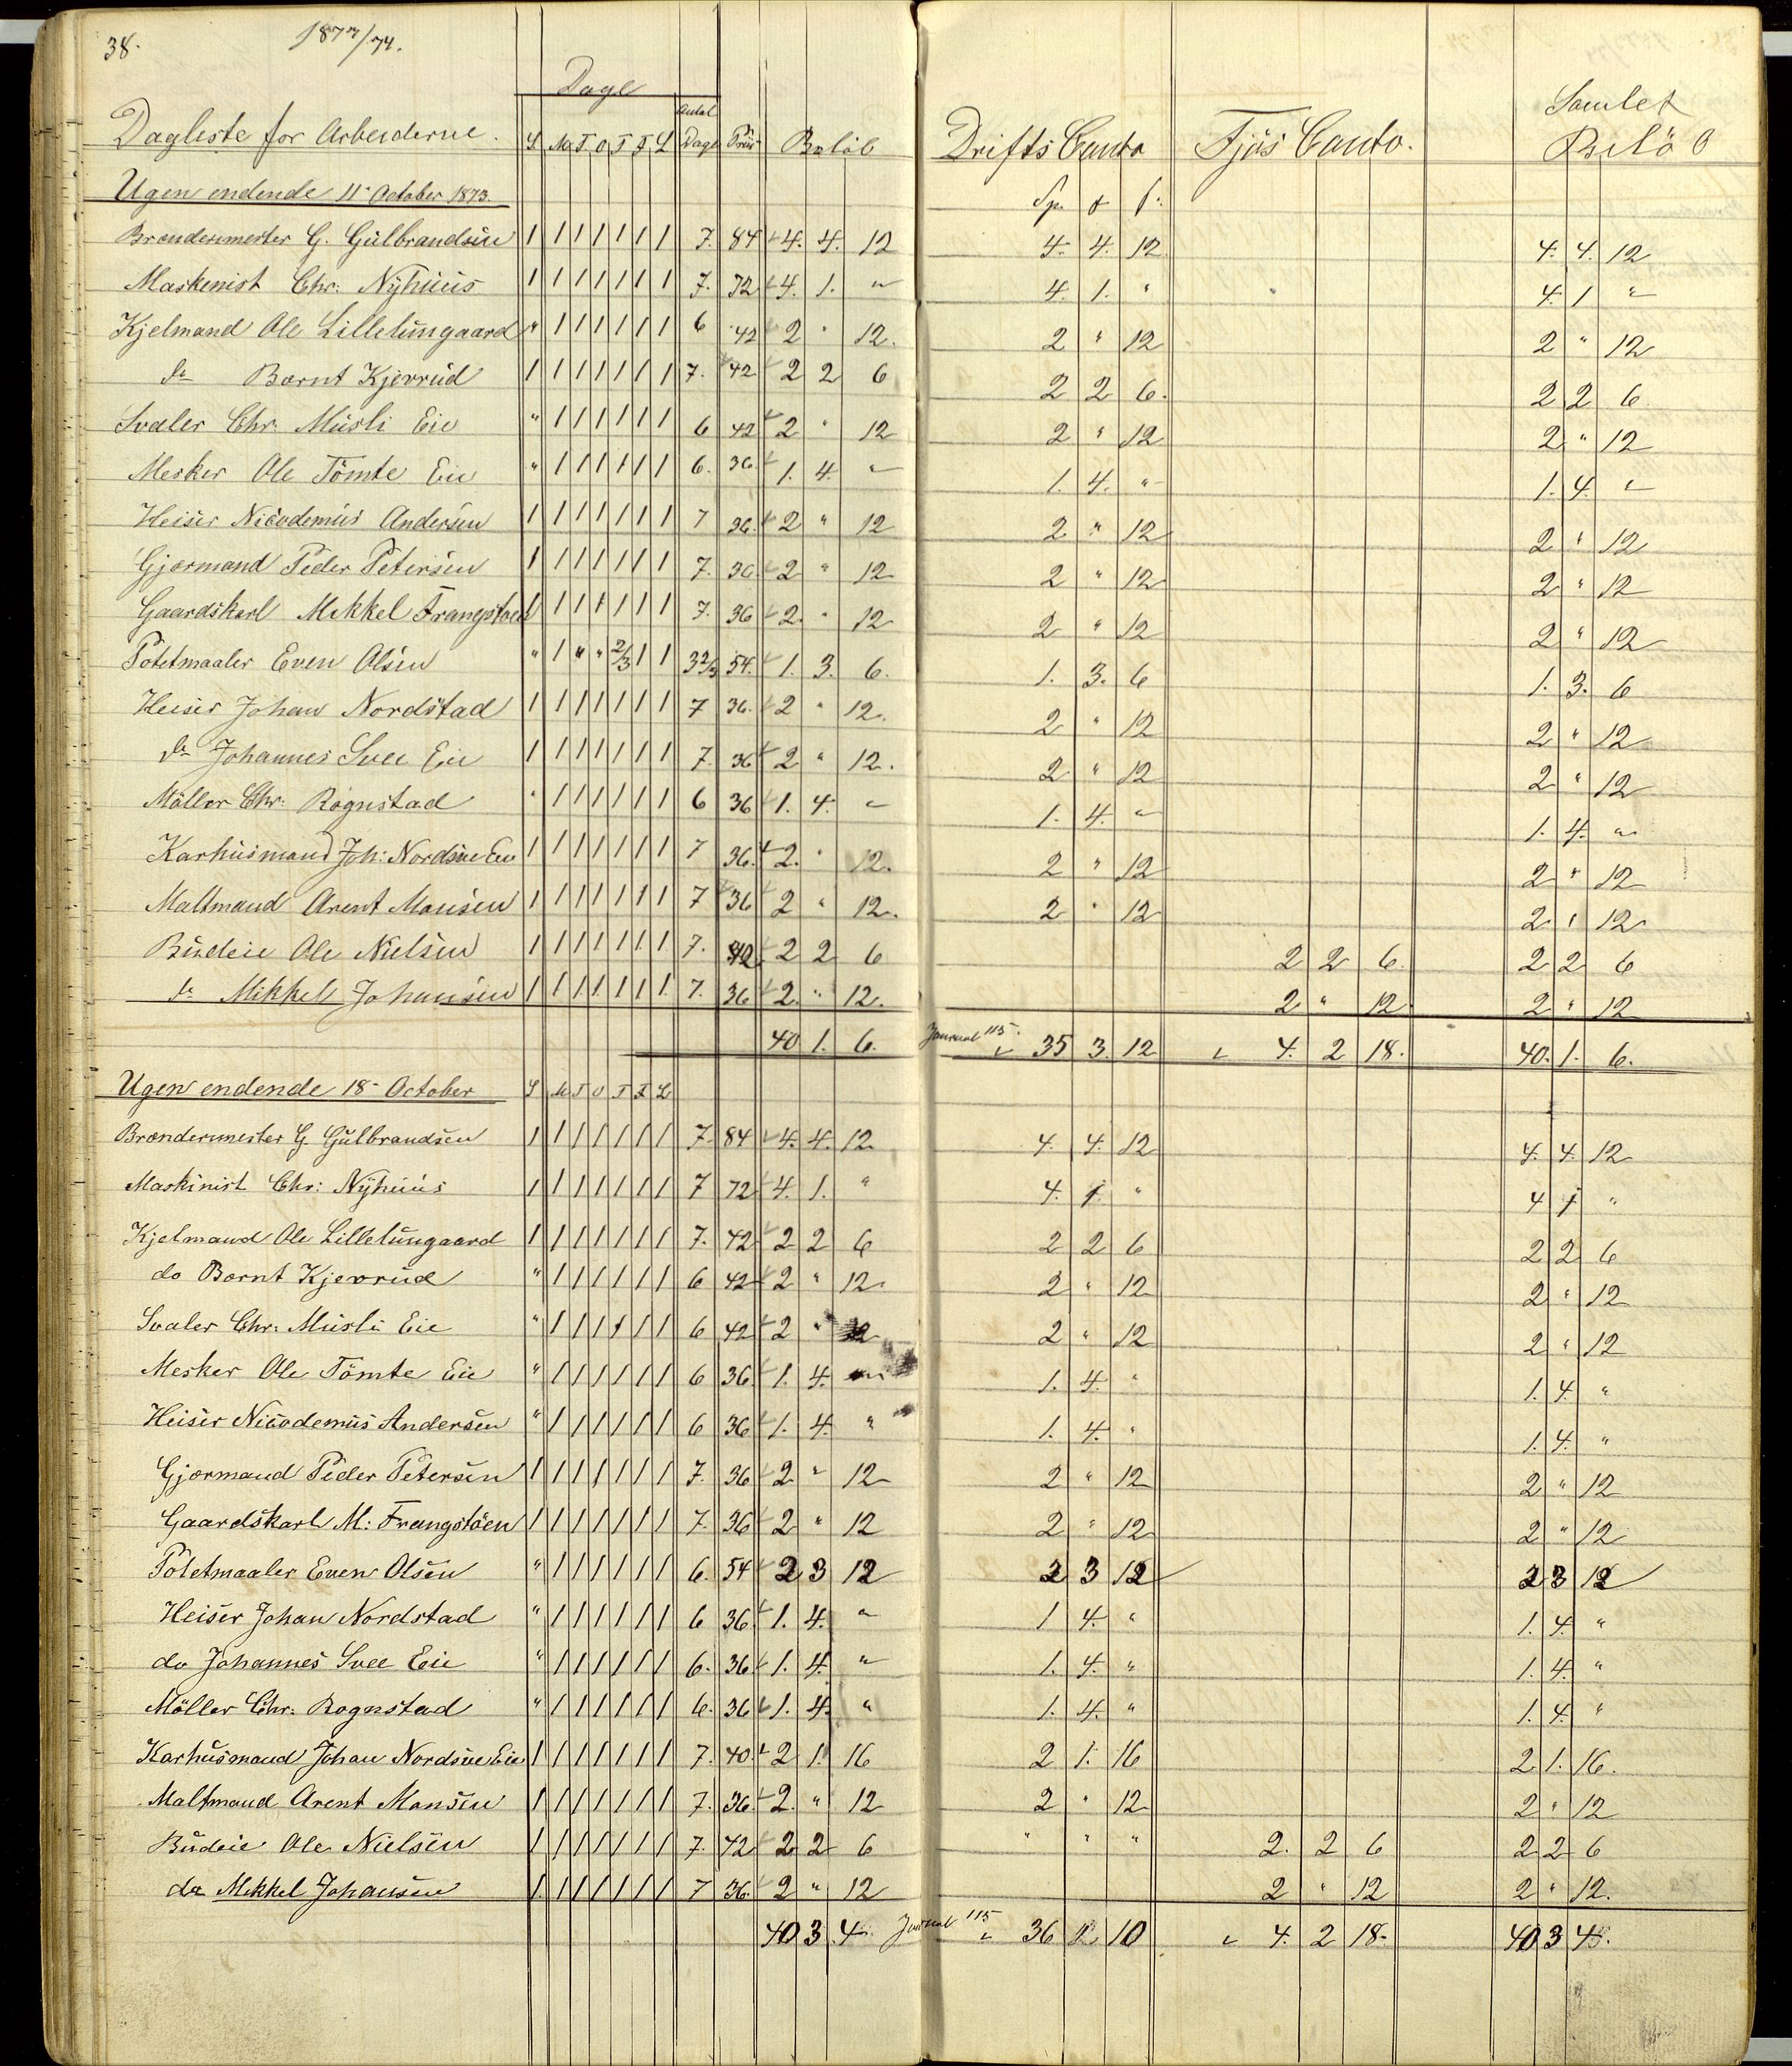 38. 1873/74.
Dage
Dagliste for Arbeiderne. S M T O T F L Antal Dage Priis Beløb Drifts Conto Fjøs Conto. Samlet Beløb
Ugen endende 11- October 1873. Sp. ℔ ſ:
Brændermester G. Gulbrandsen 1 1 1 1 1 1 1 7. 84 4. 4. 12 4. 4. 12 4. 4. 12
Maskenist Chr: Nyhuus 1 1 1 1 1 1 1 7. 72 4. 1. " 4. 1. " 4. 1 "
Kjelmand Ole Lilletungaard " 1 1 1 1 1 1 6 42 2 " 12. 2 " 12 2 " 12
do Bernt Kjevrud 1 1 1 1 1 1 1 7. 42 2 2 6 2 2 6. 2 2 6
Svaler Chr. Musli Eie " 1 1 1 1 1 1 6 42 2 " 12 2 " 12 2 " 12
Mesker Ole Tömte Eie " 1 1 1 1 1 1 6. 36. 1. 4. " 1. 4. " 1. 4. "
Heiser Nicodemus Andersen 1 1 1 1 1 1 1 7 36. 2 " 12 2 " 12 2 " 12
Gjærmand Peder Petersen 1 1 1 1 1 1 1 7. 36 2 " 12 2 " 12 2 " 12
Gaardskarl Mikkel Frangstøen 1 1 1 1 1 1 1 7. 36 2. " 12 2 " 12 2 " 12
Potetmaaler Even Olsen " 1 " " 2/3 1 1 3 2/3 54. 1. 3. 6. 1. 3. 6 1. 3. 6
Heiser Johan Nordstad 1 1 1 1 1 1 1 7 36. 2 " 12. 2 " 12 2 " 12
do Johannes Svee Eie 1 1 1 1 1 1 1 7. 36 2 " 12. 2 " 12 2 " 12
Möller Chr: Rognstad " 1 1 1 1 1 1 6 36 1. 4. " 1. 4. " 1. 4. "
Karhusmand Joh: Nordsve Eie 1 1 1 1 1 1 1 7 36. 2. " 12. 2 " 12 2 " 12
Maltmand Arent Monsen 1 1 1 1 1 1 1 7 36 2 " 12. 2 " 12 2 " 12
Budeie Ole Nielsen 1 1 1 1 1 1 1 7. 42. 2 2 6 2 2 6. 2 2 6
do Mikkel Johansen 1 1 1 1 1 1 1 7. 36 2. " 12. 2 " 12 2 " 12
40 1. 6. Journal 115. 35 3 12 4. 2 18. 40. 1. 6.
Ugen endende 18- October S M T O T F L
Brændermester G. Gulbrandsen 1 1 1 1 1 1 1 7. 84 4. 4. 12 4. 4. 12 4. 4. 12
Maskinist Chr: Nyhuus 1 1 1 1 1 1 1 7 72 4. 1. " 4. 1. " 4 1 "
Kjelmand Ole Lilletungaard 1 1 1 1 1 1 1 7. 42 2 2 6 2 2 6 2 2 6
do Bernt Kjevrud " 1 1 1 1 1 1 6 42 2 " 12. 2 " 12 2 " 12
Svaler Chr: Musli Eie " 1 1 1 1 1 1 6 42 2 " 12 2 " 12 2 " 12
Mesker Ole Tömte Eie " 1 1 1 1 1 1 6 36. 1. 4. " 1. 4. " 1. 4. "
Heiser Nicodemus Andersen " 1 1 1 1 1 1 6 36 1. 4. " 1. 4. " 1. 4. "
Gjærmand Peder Petersen 1 1 1 1 1 1 1 7. 36 2 " 12 2 " 12 2 " 12
Gaardskarl M: Frangstøen 1 1 1 1 1 1 1 7. 36 2 " 12 2 " 12 2 " 12
Potetmaaler Even Olsen " 1 1 1 1 1 1 6. 54 2 3 12 2 3 12 2 3 12
Heiser Johan Nordstad " 1 1 1 1 1 1 6 36 1. 4. " 1 4. " 1. 4. "
do Johannes Svee Eie " 1 1 1 1 1 1 6. 36 1. 4. " 1. 4. " 1. 4. "
Möller Chr: Rognstad " 1 1 1 1 1 1 6. 36 1. 4. " 1. 4. " 1. 4. "
Karhusmand Johan Nordsve Eie 1 1 1 1 1 1 1 7. 40. 2 1. 16 2 1. 16 2 1. 16.
Maltmand Arent Monsen 1 1 1 1 1 1 1 7. 36. 2. " 12 2 " 12 2 " 12
Budeie Ole Nielsen 1 1 1 1 1 1 1 7. 42 2 2 6 " " " 2. 2 6 2 2 6
do Mikkel Johansen 1 1 1 1 1 1 1 7 36. 2 " 12 2 " 12 2 " 12.
40 3 4 Journal 115 36 10 4. 2 18. 40 3 4.